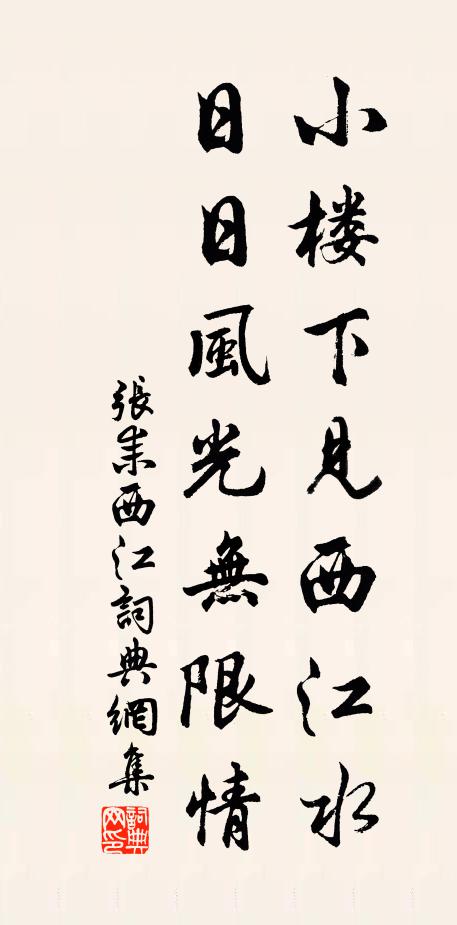 小楼下見西江水
日日風光無限情
張耒西江詞典網集
詞典网印